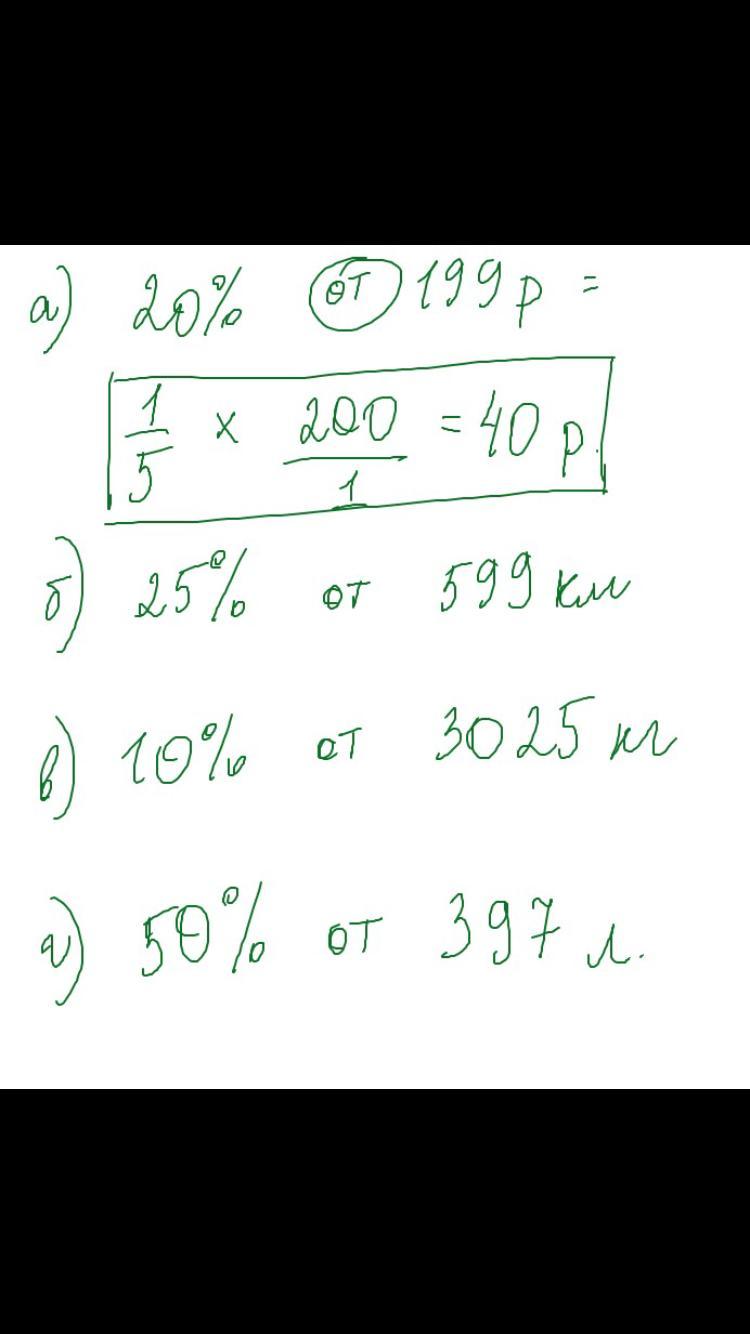 а) 20% от 199 р =
1/5 x 200/1 = 40 р.
б) 25% от 599 км
в) 10% от 3025 кг
г) 50% от 397 л.